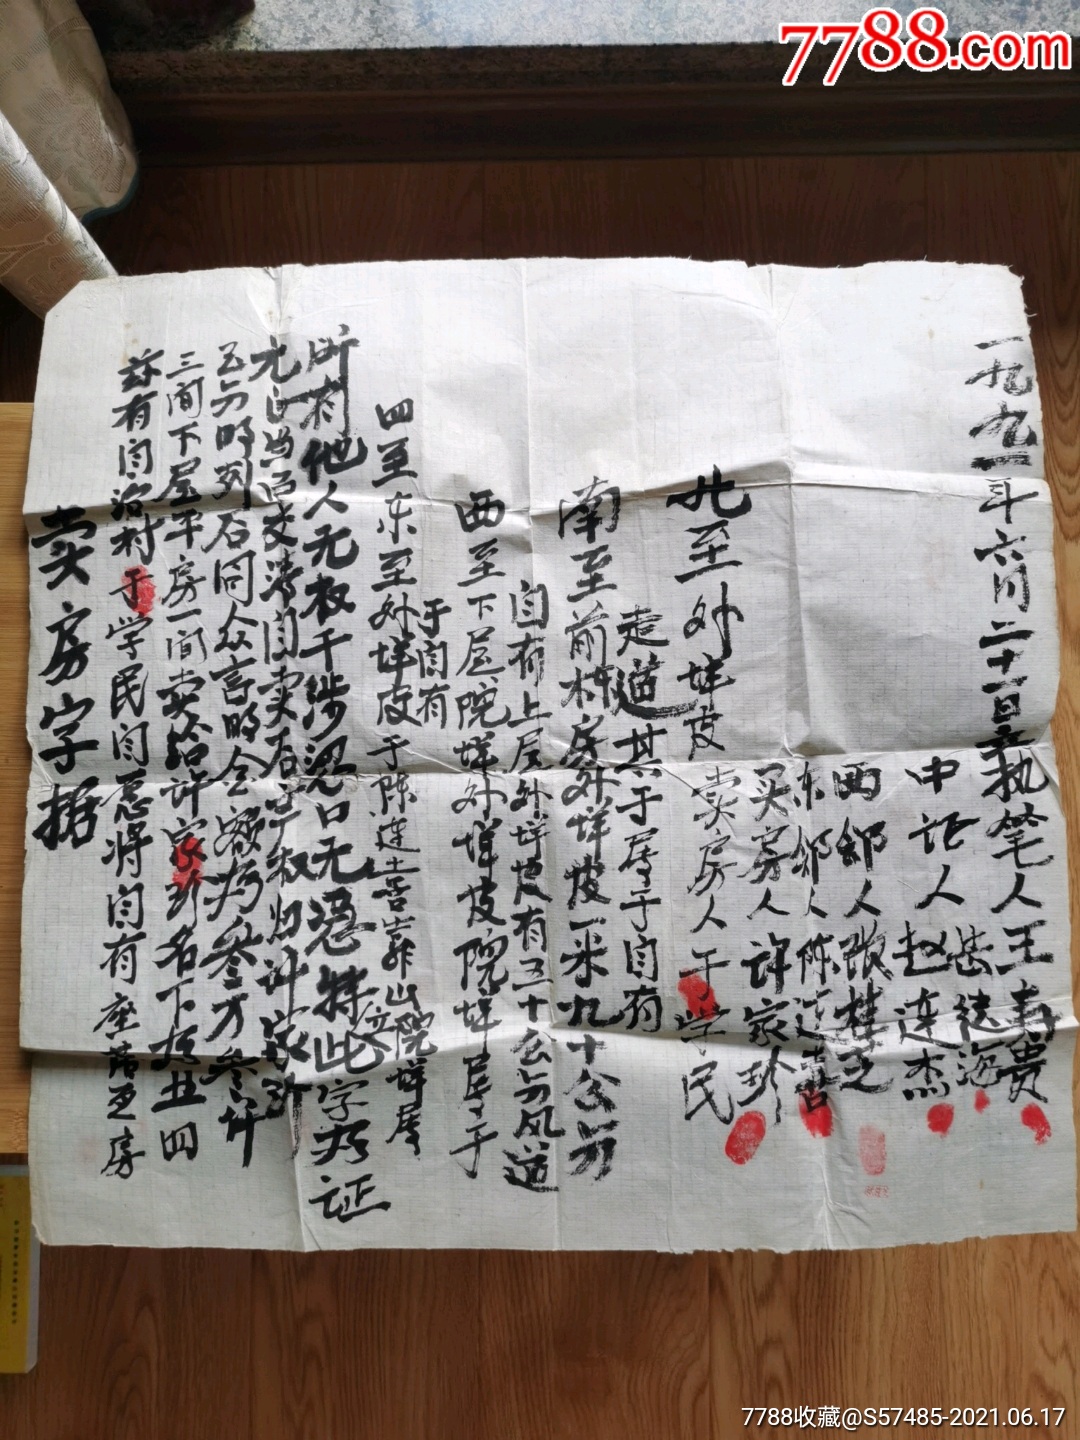 卖房字据
兹有自治村于学民自愿将自有座落正房
三间下屋平房一间卖给许家珍名下为业四
至分明列后同众言明全额为叁万叁仟
元正当面交清自卖后产权归许家珍
所有他人无权干涉恐口无凭特此字为证
四至东至外垟皮于陈连喜靠山院垟屋
于自有
西至下屋院垟外垟皮院垟屋于
自有上屋外垟皮有五十公分风道
南至前栋房外垟皮一米九十公分
走道其于屋于自有
北至外垟皮
卖房人于学民
买房人许家珍
东邻人陈连喜
西邻人张桂芝
中证人赵连杰
岳德海
执笔人王寿贵
一九九一年六月二十一日立
7788.com
7788收藏@S57485-2021.06.17